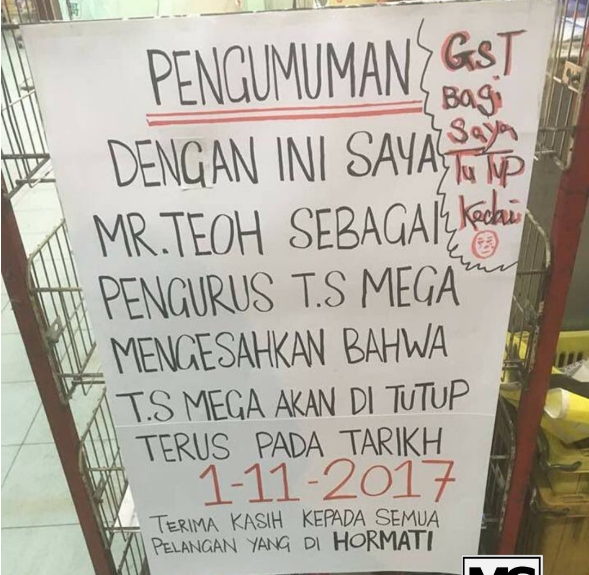 PENGUMUMAN
DENGAN INI SAYA
MR.TEOH SEBAGAI
PENGURUS T.S MEGA
MENGESAHKAN BAHWA
T.S MEGA AKAN DI TUTUP
TERUS PADA TARIKH
1-11-2017
TERIMA KASIH KEPADA SEMUA
PELANGAN YANG DI HORMATI
GST
Bagi
Saya
TuTup
Kedai